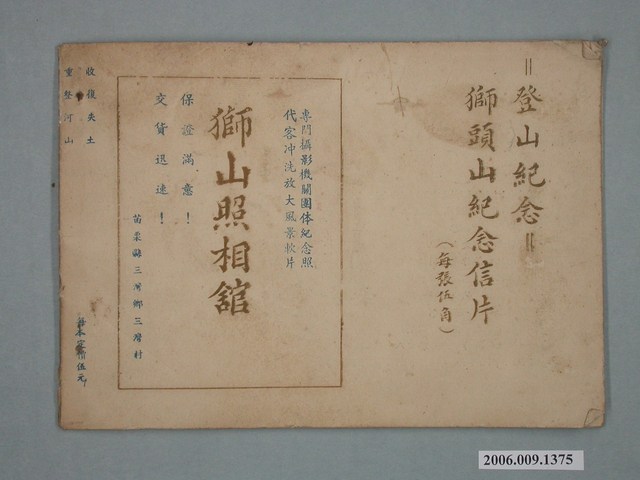 =登山紀念=
獅頭山紀念信片
(每張伍角)
專門攝影機關團体紀念照
代客冲洗放大風景軟片
獅山照相舘
保證滿意!
交貨迅速!
苗栗縣三灣鄉三灣村
收復失土
重整河山
本定價伍元
2006.009.1375